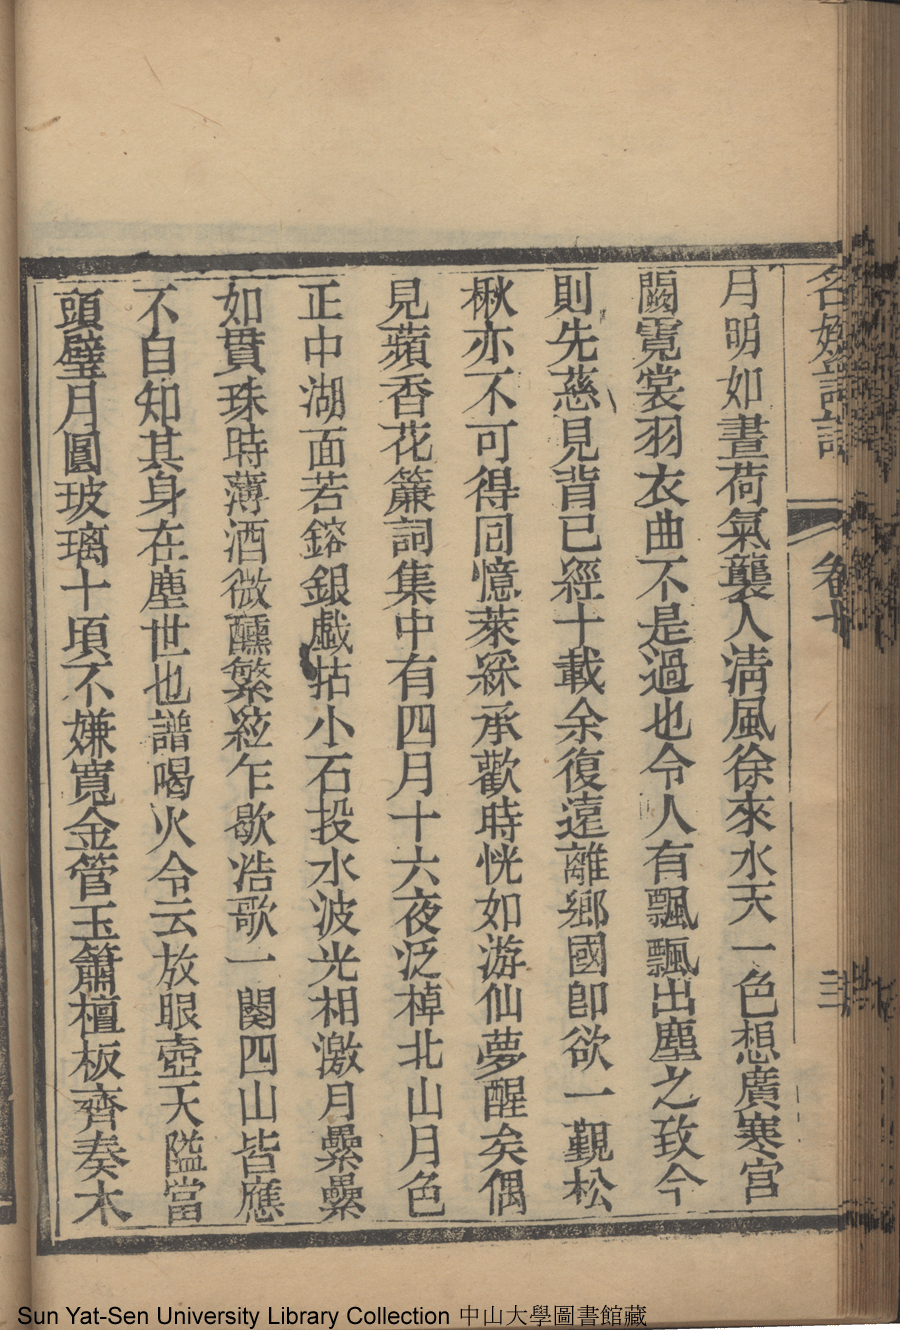 名媛詩話
卷十
三
月明如晝荷氣襲人淸風徐來水天一色想廣寒宮
闕霓裳羽衣曲不是過也令人有飄飄出塵之致今
則先慈見背已經十載余復遠離鄉國卽欲一觀松
楸亦不可得回憶萊綵承歡時恍如游仙夢醒矣偶
見蘋香花簾詞集中有四月十六夜泛棹北山月色
正中湖面若鎔銀戱拈小石投水波光相激月纍纍
如貫珠時薄酒微醺繁絃乍歇浩歌一闋四山皆應
不自知其身在塵世也譜喝火令云放眼壺天隘當
頭璧月圓玻璃十頃不嫌寬金管玉簫檀板齊奏木
Sun Yat-Sen University Library Collection 中山大學圖書館藏